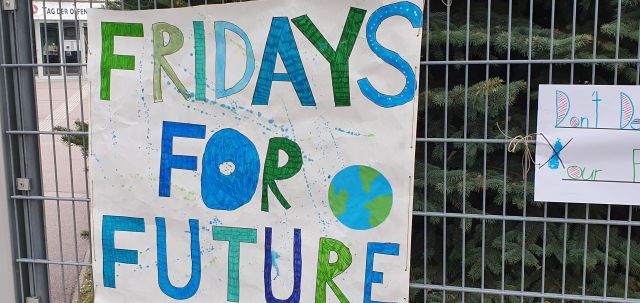 TAG DER OFFEN
FRIDAYS
FOR
FUTURE
Don't
our